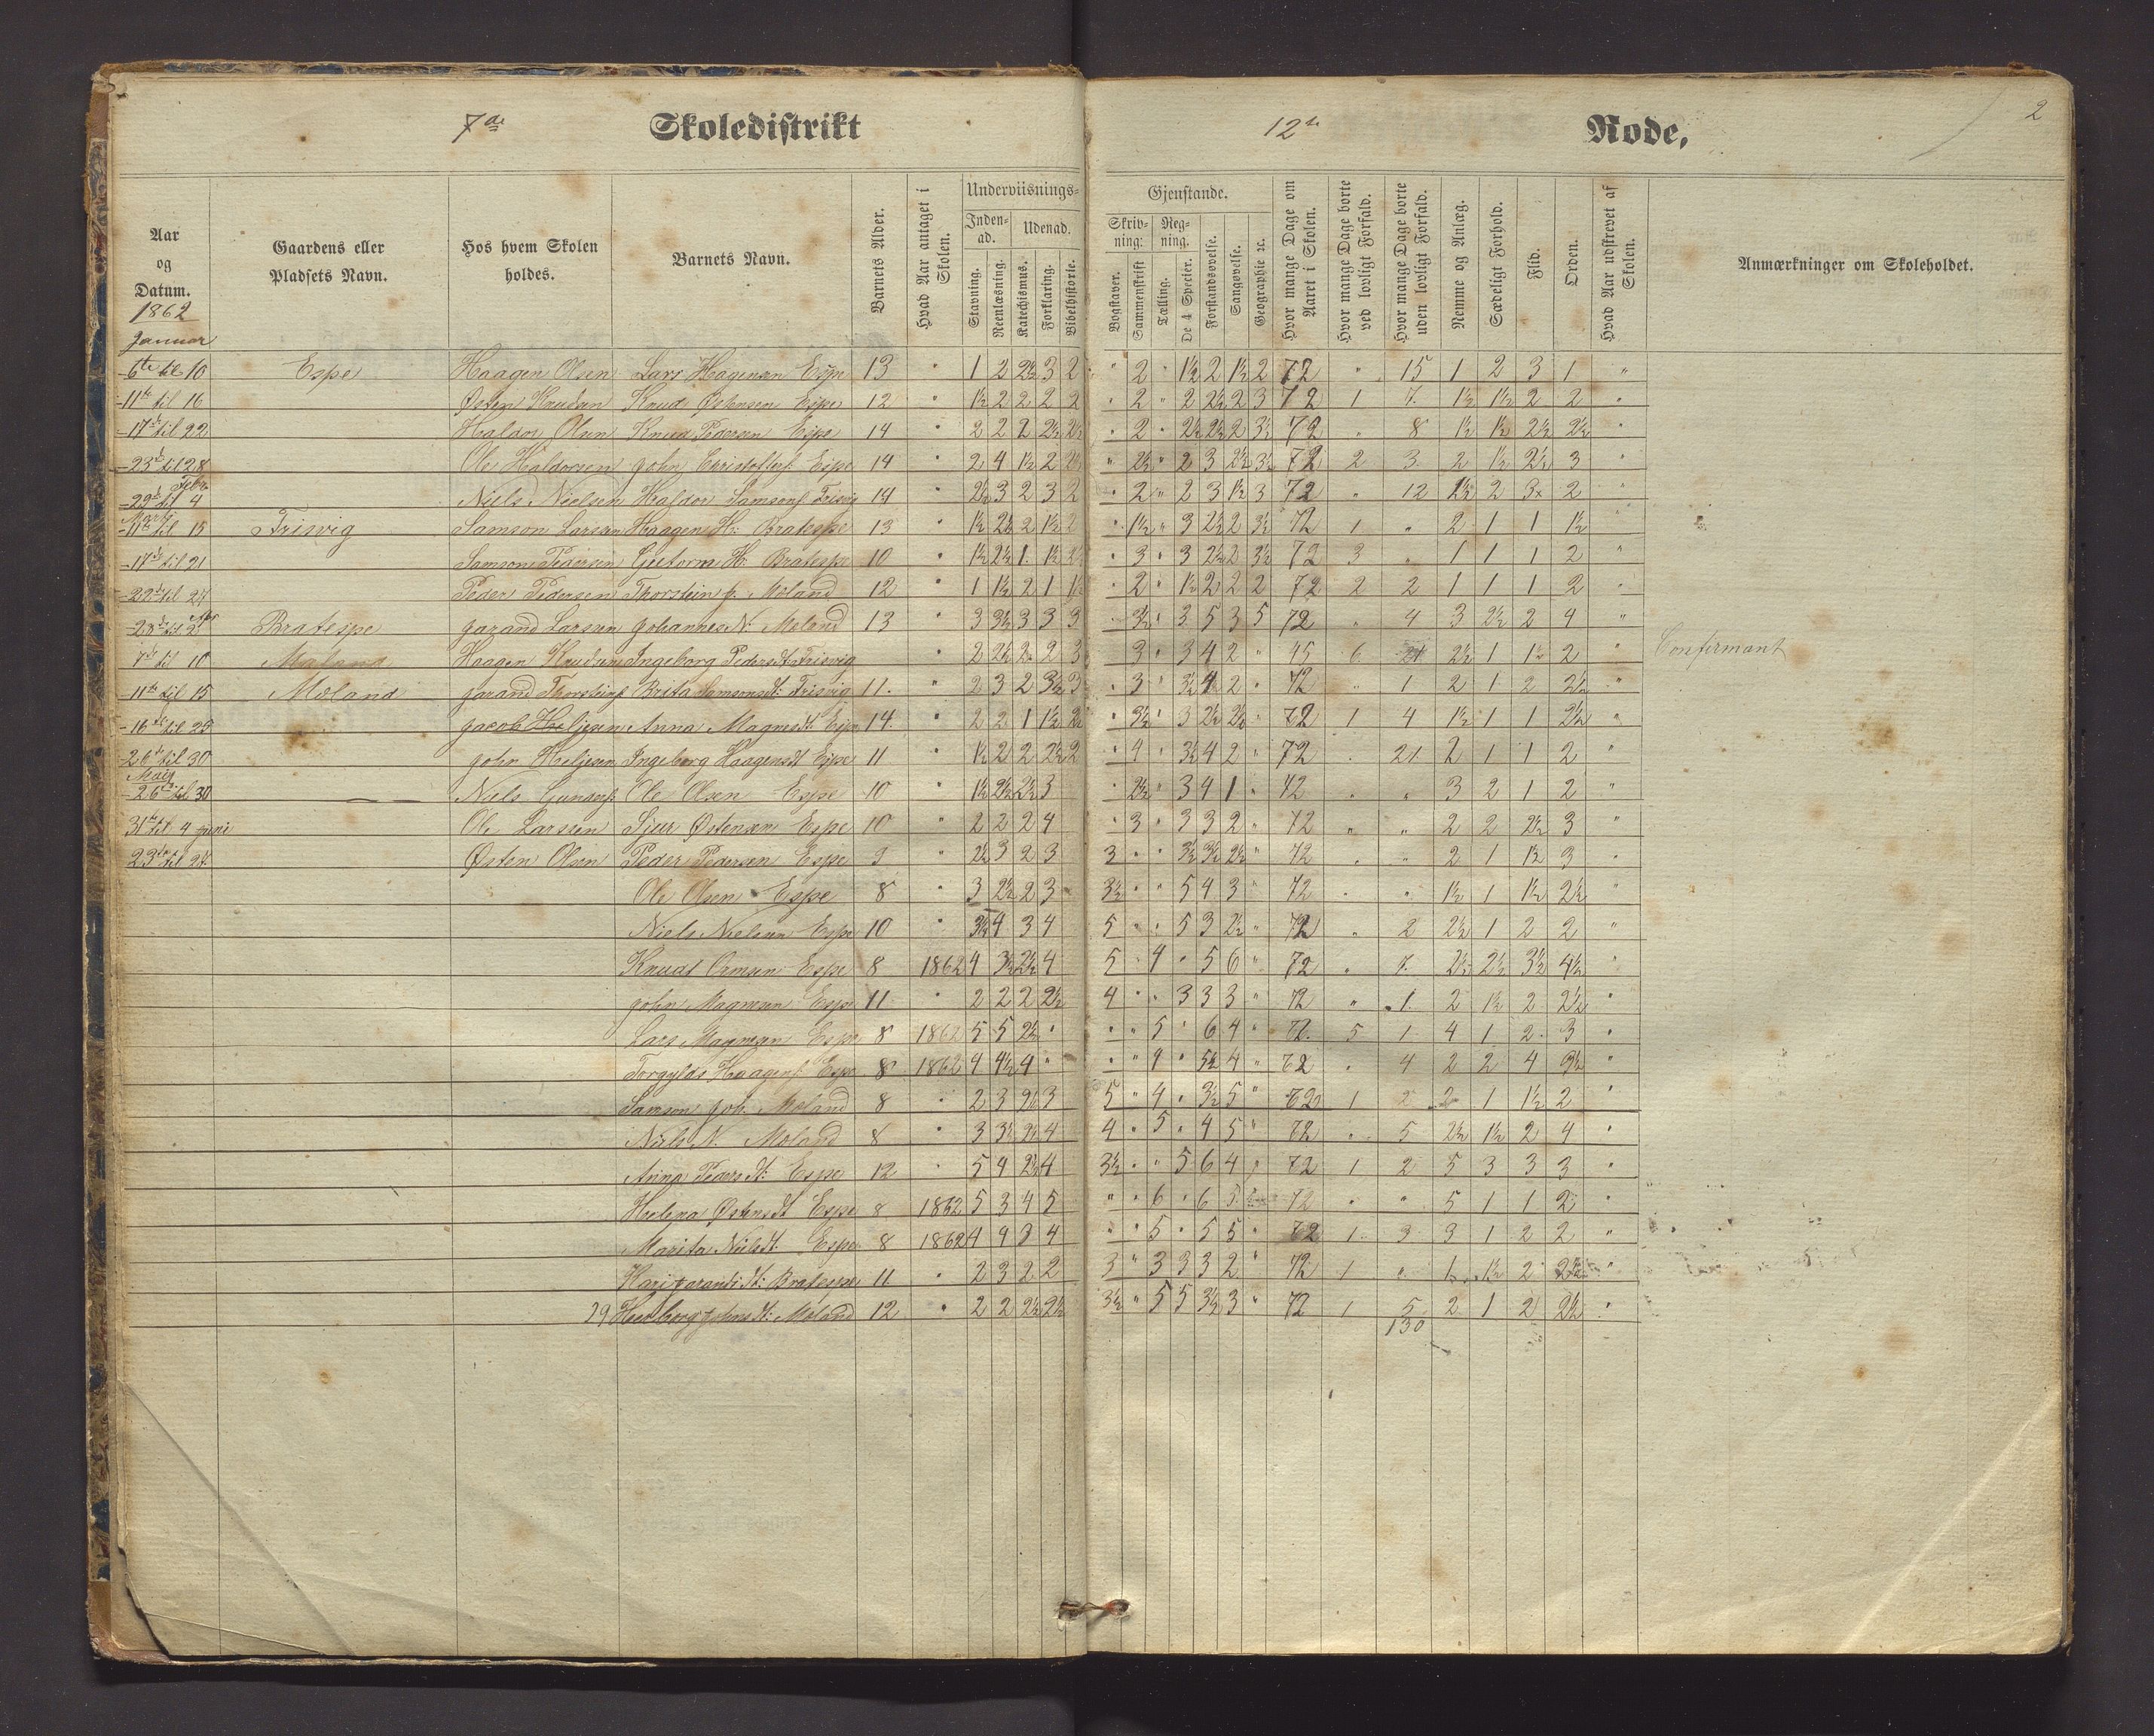 7de Skoledistrikt 12te Rode, 2
Underviisnings- Gjenstande.
Inden-ad. Udenad. Skriv-ning: Reg-ning.
Aar og Datum. Gaardens eller Pladsets Navn. Hos hvem Skolen holdes. Barnets Navn. Barnets Alder. Hvad Aar antaget i Skolen. Stavning. Reenlæsning. Katechismus. Forklaring. Bibelhistorie. Bogstaver. Sammenskrift Tælling. De 4 Specier. Forstandsøvelse. Sangøvelse. Geographie ec. Hvor mange Dage om Aaret i Skolen. Hvor mange Dage borte ved lovligt Forfald. Hvor mange Dage borte uden lovligt Forfald. Nemme og Anlæg. Sædeligt Forhold. Flid. Orden. Hvad Aar udskrevet af Skolen. Anmærkninger om Skoleholdet.
1862
Januar
6te til 10 Espe Haagen Olsen Lars Hagensen Espe 13 " 1 2 2½ 3 2 " 2 " 1½ 2 1½ 2 72 " 15 1 2 3 1 "
11te til 16 Østen Knudsen Knud Østensen Espe 12 " 1½ 2 2 2 2 " 2 " 2 2½ 2 3 72 1 7 1½ 1½ 2 2 "
17de til 22 Haldor Olsen Knud Pedersen Espe 14 " 2 2 2 2½ 2½ " 2 " 2½ 2½ 2 3½ 72 " 8 1½ 1½ 2½ 2½ "
23de til 28 Ole Haldorsen John Christoffers. Espe 14 " 2 4 1½ 2 2½ " 2½ " 2 3 2½ 3½ 72 2 3 2 1½ 2½ 3 "
29de til 4 Febr. Niels Nielsen Haldor Samsons. Frisvig 14 " 2½ 3 2 3 2 " 2 " 2 3 1½ 3 72 " 12 2½ 2 3 2 "
Marts
11te til 15 Frisvig Samson Larsen Haagen H. Bratespe 13 " 1½ 2½ 2 1½ 2 " 1½ " 3 2½ 2 3½ 72 1 " 2 1 1 1½ "
17de til 21 Samson Pedersen Guttorm H. Bratespe 10 " 1½ 2½ 1 1½ 2½ " 3 " 3 2½ 2 3½ 72 3 " 1 1 1 2 "
22de til 27 Peder Pedersen Thorstein J. Moland 12 " 1 1½ 2 1 1½ " 2 " 1½ 2 2 2 72 2 2 1 1 1 2 "
28de til 2 Apr Bratespe Jarand Larsen Johannes N. Moland 13 " 3 3½ 3 3 3 " 3½ " 3 5 3 5 72 " 4 3 2½ 2 4 "
7de til 10 Moland Haagen Knudsen Ingeborg Pedersdt Frisvig " 2 2½ 2 2 3 3 " 3 4 2 " 45 6 21 2½ 1 1½ 2 " Confirmant
11te til 15 Moland Jarand Thorsteins. Brita Samsonsdt: Frisvig 11 " 2 3 2 3½ 3 " 3 " 3½ 4 2 " 72 " 1 2 1 2 2½ "
16de til 25 Jacob Heljesen Anna Magnesdt: Espe 14 " 2 2 1 1½ 2½ " 3½ " 3 2½ 2½ " 72 1 4 1½ 1 1 2½ "
26de til 30 John Heljesen Ingeborg Haagensdt Espe 11 " 1½ 2 2 2½ 2 " 4 " 3½ 4 2 " 72 " 21 2 1 1 2 "
Maij
26de til 30 Niels Gunders. Ole Olsen Espe 10 " 1½ 2½ 2½ 3 " 2½ " 3 4 1 " 42 " " 3 2 1 2 "
31te til 4 Juni Ole Larsen Sjur Østensen Espe 10 " 2 2 2 4 " 3 " 3 3 2 " 72 " " 2 2 2½ 3 "
23de til 27 Østen Olsen Peder Pedersen Espe 9 " 2½ 3 2 3 3 " " 3½ 3½ 2½ " 72 " " 2 1 1½ 3 "
Ole Olsen Espe 8 " 3 2½ 2 3 3½ " " 5 4 3 " 72 " " 1½ 1 1½ 2½ "
Niels Nielsen Espe 10 " 3½ 4 3 4 5 " " 5 3 2½ " 72 " 2 2½ 1 2 2 "
Knudt Ormsen Espe 8 1862 4 3½ 2½ 4 5 " 4 " 5 6 " 72 " 7 2½ 2½ 3½ 4½ "
John Magnesen Espe 11 " 2 2 2 2½ 4 " " 3 3 3 " 72 " 1 2 1½ 2 2½ "
Lars Magnesen Espe 8 1862 5 5 2½ " " " 5 " 6 4 " 72 5 1 4 1 2 3 "
Torgylds Haagens. Espe 8 1862 4 4½ 4 " " " 4 " 5½ 4 " 72 " 4 2 2 4 3½ "
Samson Joh. Moland 8 " 2 3 2½ 3 5 " 4 " 3½ 5 " 72 1 2 2 1 1½ 2 "
Niels N. Moland 8 " 3 3½ 2½ 4 4 " 5 " 4 5 " 72 " 5 2½ 1½ 2 4 "
Anna Pedersdt: Espe 12 " 5 4 2½ 4 3½ " " 5 6 4 " 72 1 2 5 3 3 3 "
Helena Østensdt Espe 8 1862 5 3 4 5 " " 6 " 6 5 72 " " 5 1 1 2 "
Marita Nielsdt: Espe 8 1862 4 4 3 4 " " 5 " 5 5 " 72 1 3 3 1 2 2 "
Hari Jarandsdt: Bratespe 11 " 2 3 2 2 3 " 3 3 3 2 " 72 1 " 1 1½ 2 2½ "
29 Herborg Johnsdt: Moland 12 " 2 2 2½ 2½ 3½ " 5 5 3½ 3 " 72 1 5 2 1 2 2½ "
130